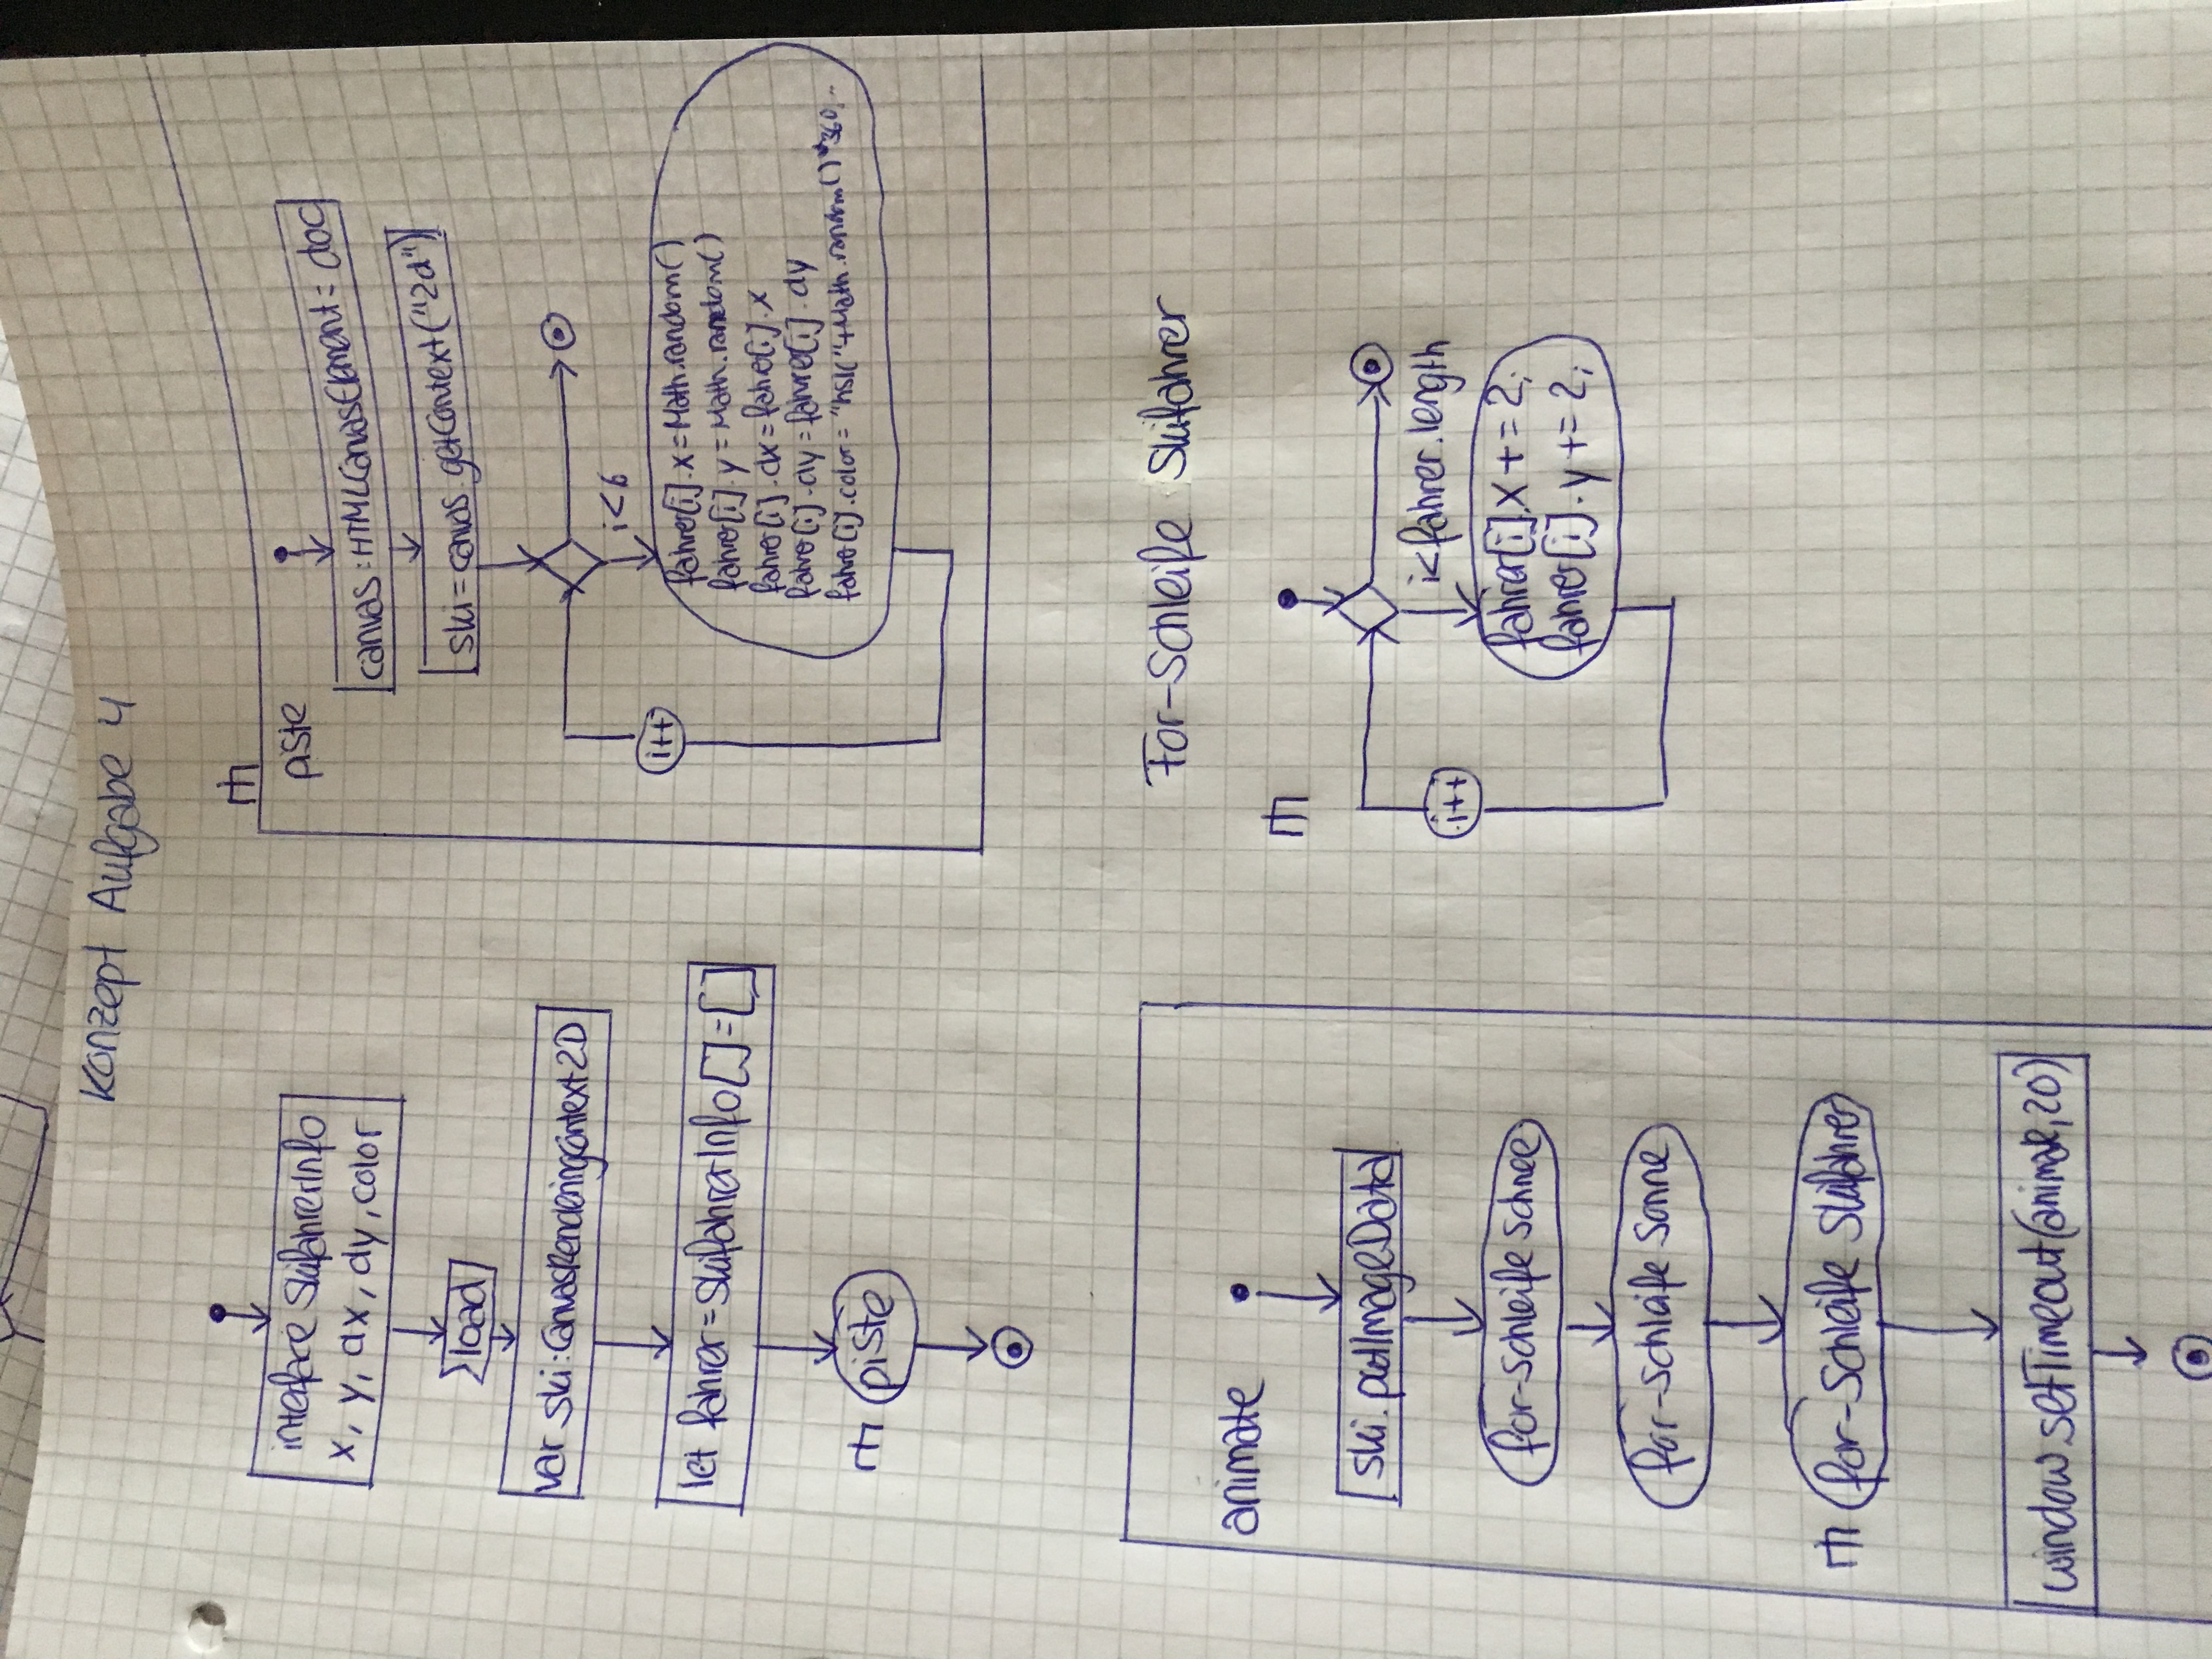 Konzept Aufgabe 4
interface SkifahrerInfo
x, y, dx, dy, color
load
var ski: CanvasRenderingContext2D
let fahrer = SkifahrerInfo[] = []
piste
piste
canvas: HTMLCanvasElement = doc
ski = canvas.getContext("2d")
i<6
i++
fahrer[i].x = Math.random()
fahrer[i].y = Math.random()
fahrer[i].dx = fahrer[i].x
fahrer[i].dy = fahrer[i].dy
fahrer[i].color = "hsl(" + Math.random() * 360...
animate
ski.putImageData
for-Schleife Schnee
for-Schleife Sonne
for-Schleife Skifahrer
window.setTimeout(animate, 20)
For-Schleife Skifahrer
i<fahrer.length
i++
fahrer[i].x += 2;
fahrer[i].y += 2;